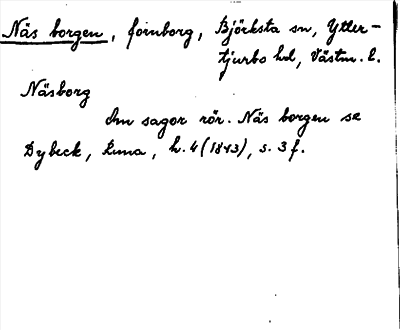 Näs borgen, fornborg, Björksta sn, Ytter-
tjurbo hd, Västm. l.
Näsborg
Om sagor rör. Näs borgen se
Dybeck, Runa, h. 4 (1843), s. 3 f.